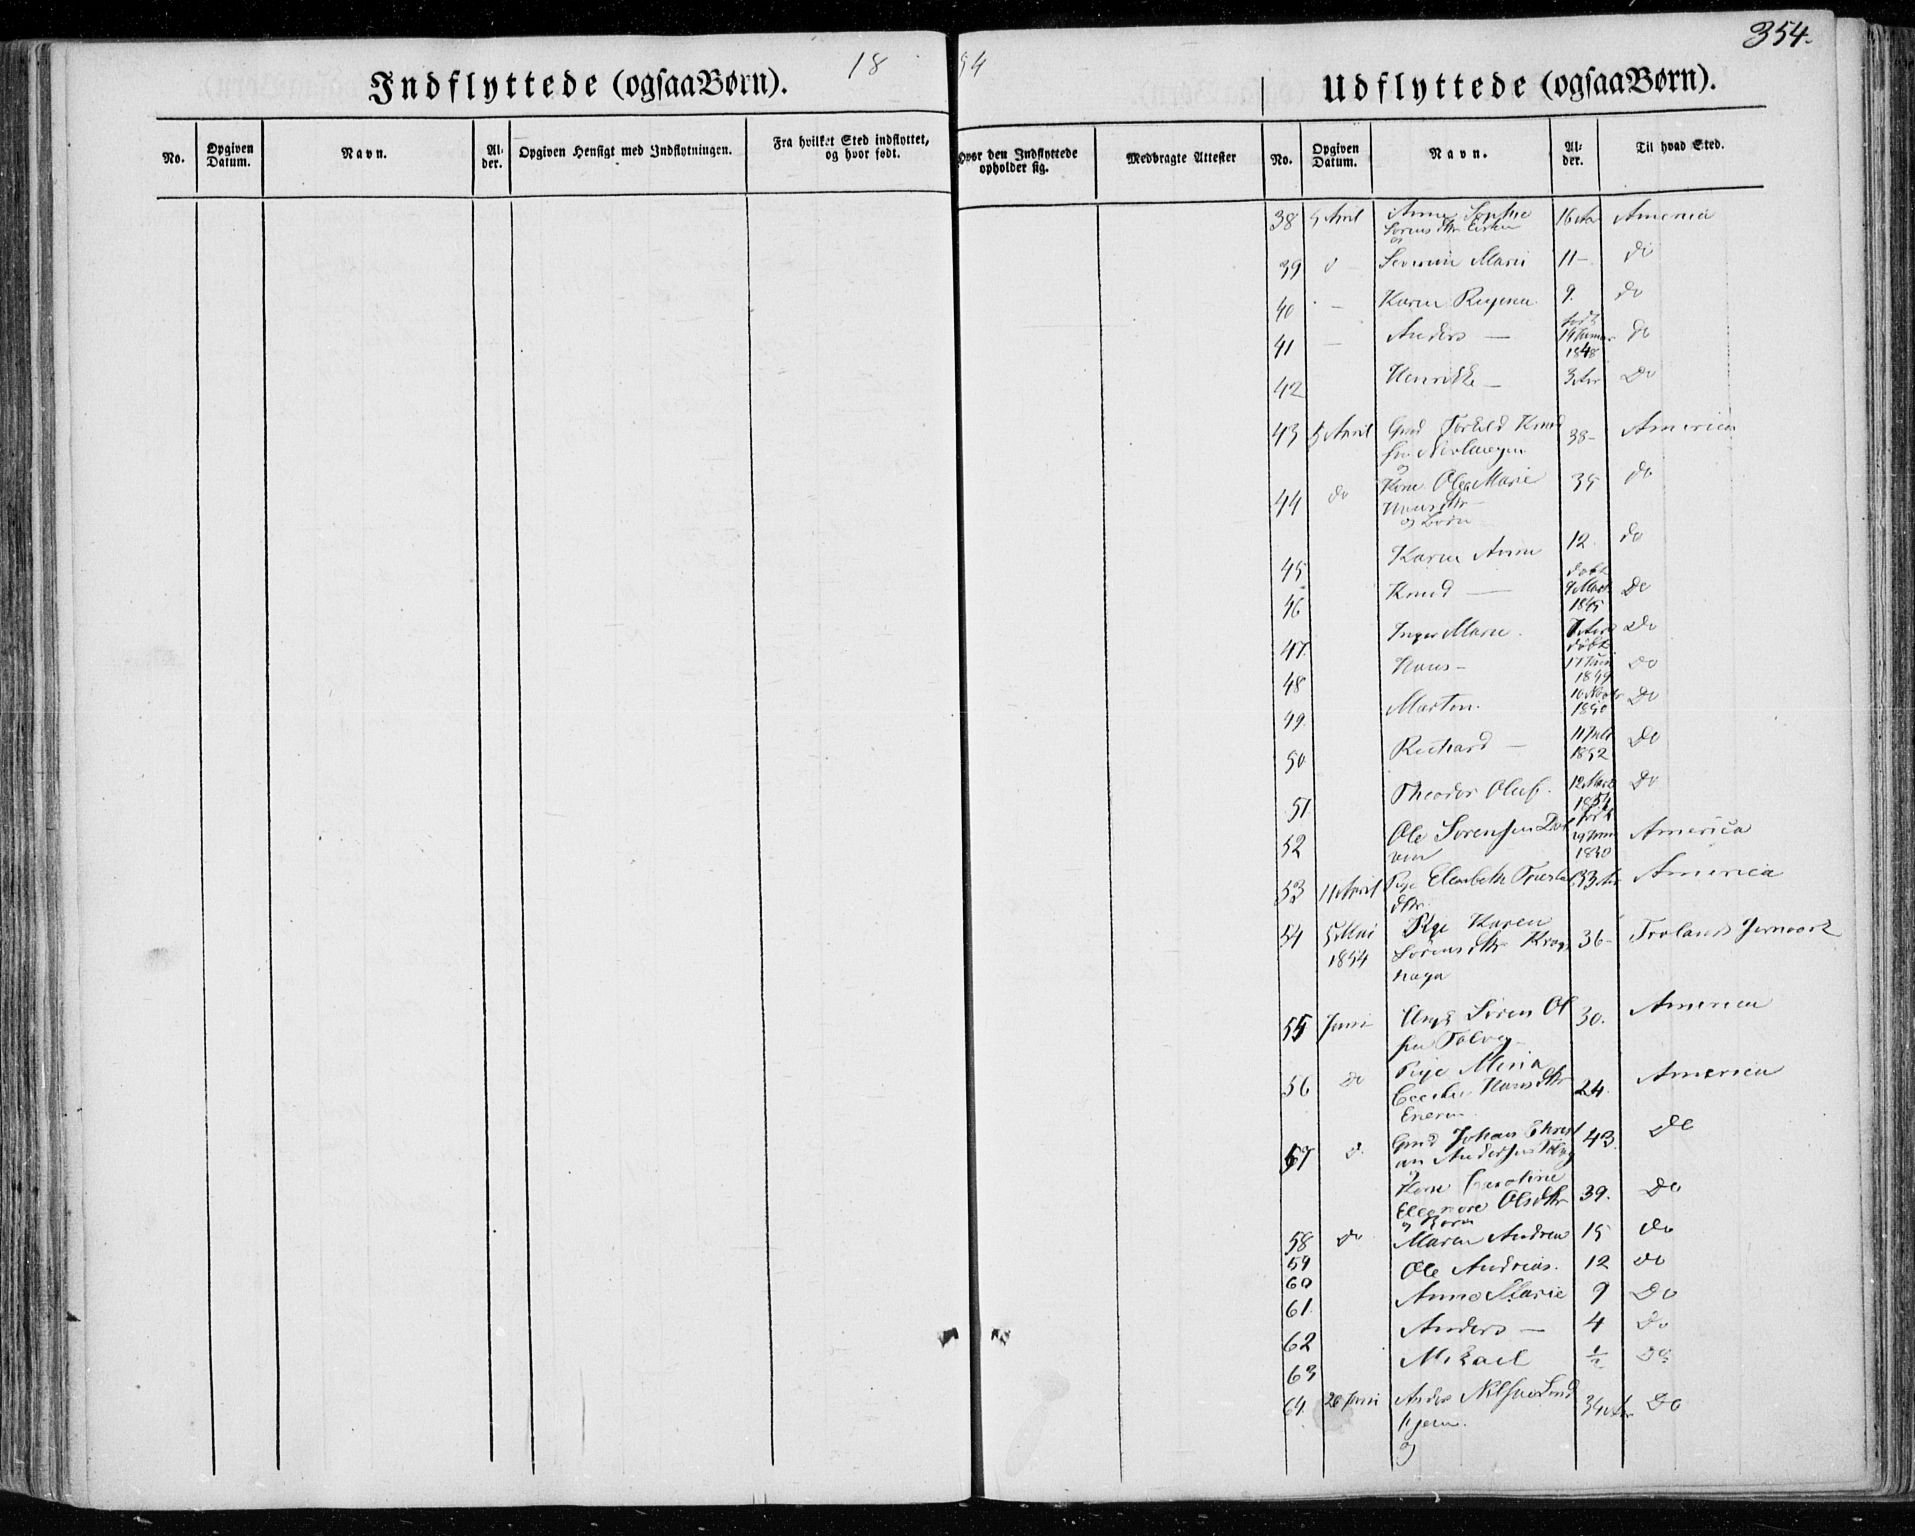 354.
18 54
Indflyttede (ogsaa Børn).
Udflyttede (ogsaa Børn).
No.
Opgiven Datum.
Navn.
Al- der.
Opgiven Hensigt med Indflytningen.
Fra hvilket Sted indflyttet, og hvor født.
Hvor den Indflyttede opholder sig.
Medbragte Attester
No.
Opgiven Datum.
Navn.
Al- der.
Til hvad Sted.
38 5 April Anne Sophie 16 Aar America
Sørensdtr
og
39 d – Severine Marie 11– do
40 – Karen 9. do
41 – Anders – født 14 1848 do
42 Henrikke – 3 Aar Do
43 5 April Gmd Torkild Knud 38– America
sen
og
44 do Kone Olea Marie 35 do
Hansdtr
og Børn
45 Karen Anne 12. do
46 Knud – døbt 9 Marts 1845 Do
47. Inger Marie. 7 Aar Do
48 Hans – døbt 17 Juni 1849 Do
49. Morten. 16 Novbr 1850 Do
50 Richard – 11 Juli 1852 Do
51 Theodor Oluf. 12 Marts 1854 Do
52 Ole Sørensen født 29 1830 America
53 11 April Pige Elisabeth 33 Aar America
dtr.
54 5 Mai Pige Karen 36– Frolands Jernværk
1854 Sørensdtr Krog
hagen
55 Juni Ungk Søren Ol 30. America
sen
56 Do Pige Maria 24. America
Hansdtr
57 d. Gmd Johan Christ 43. do
ian Andersen
og
Kone Caroline
Eleonore Olsdtr 39. Do
og Børn
58 Do Maren Andrea 15 do
59 Ole Andreas. 12 do
60
61. Anne Marie 9 Do
62 Anders – 4 Do
63 Mikael ½ Do
64. 26 Juni Anders Nilsen Lind 34 Aar Do
tjern.
og